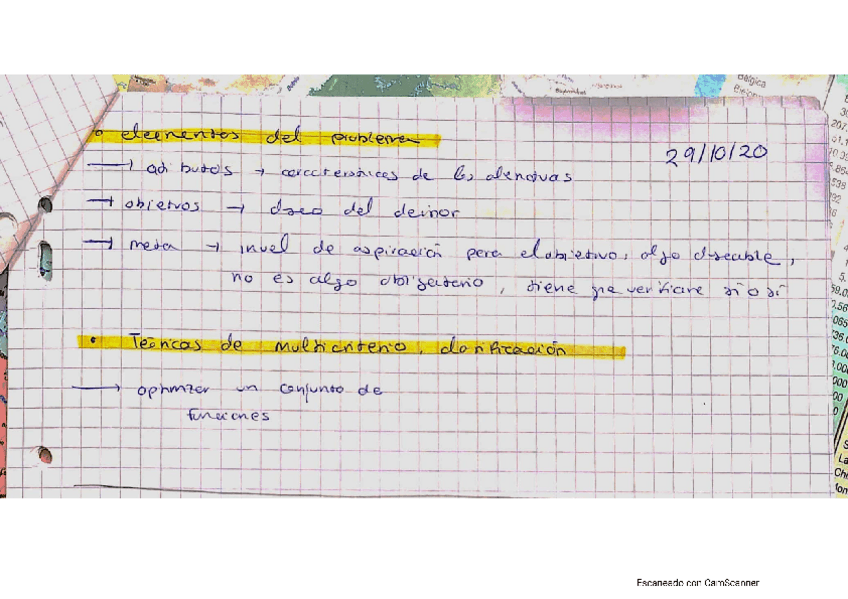 Bélgica
29/10/20
• elementos del problema
→ atributos → características de las alternativas
→ objetivos → deseo del decisor
→ meta → nivel de aspiración para el objetivo, algo deseable,
no es algo obligatorio, tiene que verificarse sí o sí
• Técnicas de multicriterio, clasificación
→ optimizar un conjunto de
funciones
Escaneado con CamScanner